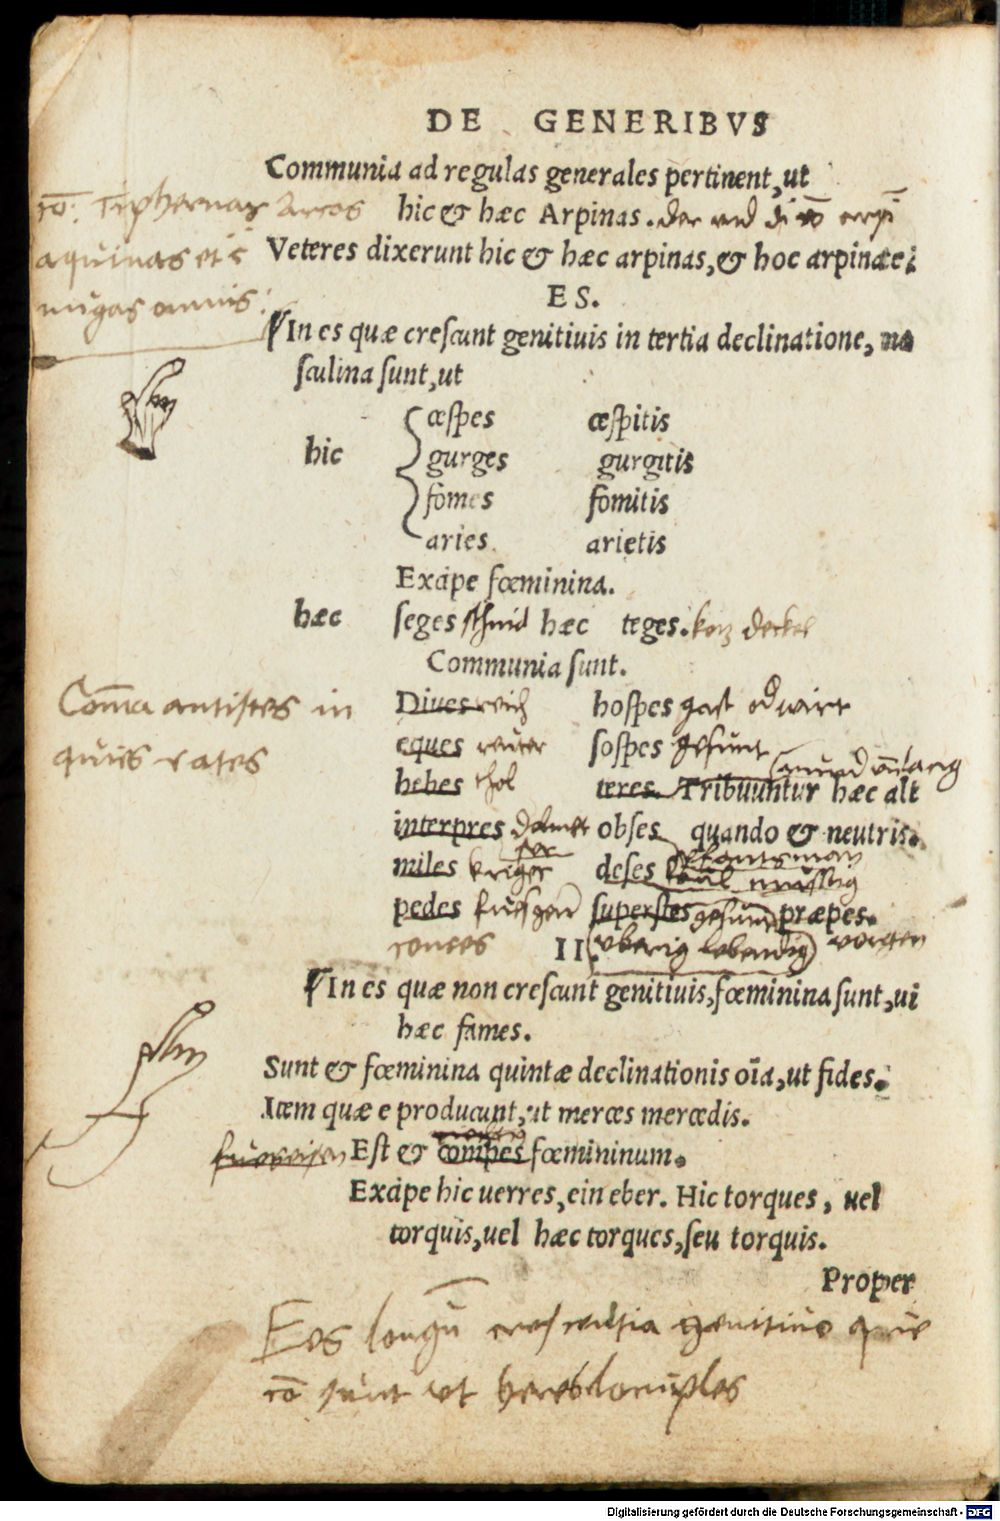 DE GENERIBVS
Communia ad regulas generales pertinent, ut
hic & hæc Arpinas. der und di
Veteres dixerunt hic & hæc arpinas, & hoc arpinæ:
aquinas et
nugas omnis
ES.
In es quæ creſcunt genitiuis in tertia declinatione, ma
ſculina ſunt, ut
cæſpes cæſpitis
hic gurges gurgitis
fomes fomitis
aries arietis
Excipe fœminina.
hæc ſeges hæc teges. deckel
Communia ſunt.
Com̄a antistes in
quies vates
Diues reich hoſpes gast od wirt
eques reuter ſoſpes gesunt
hebes teres. Tribuuntur hæc ali
interpres obſes quando & neutris.
miles kriger deſes faul mussig
pedes superſtes præpes.
II. uberig lebendig
In es quæ non creſcunt genitiuis, fœminina ſunt, ut
hæc fames.
Sunt & fœminina quintæ declinationis oīa, ut fides.
Item quæ e producunt, ut merces mercedis.
Eſt & compes fœmininum.
Excipe hic uerres, ein eber. Hic torques, uel
torquis, uel hæc torques, ſeu torquis.
Proper
Es longū genitiuo
cō sunt ut heres locuples
Digitalisierung gefördert durch die Deutsche Forschungsgemeinschaft - DFG